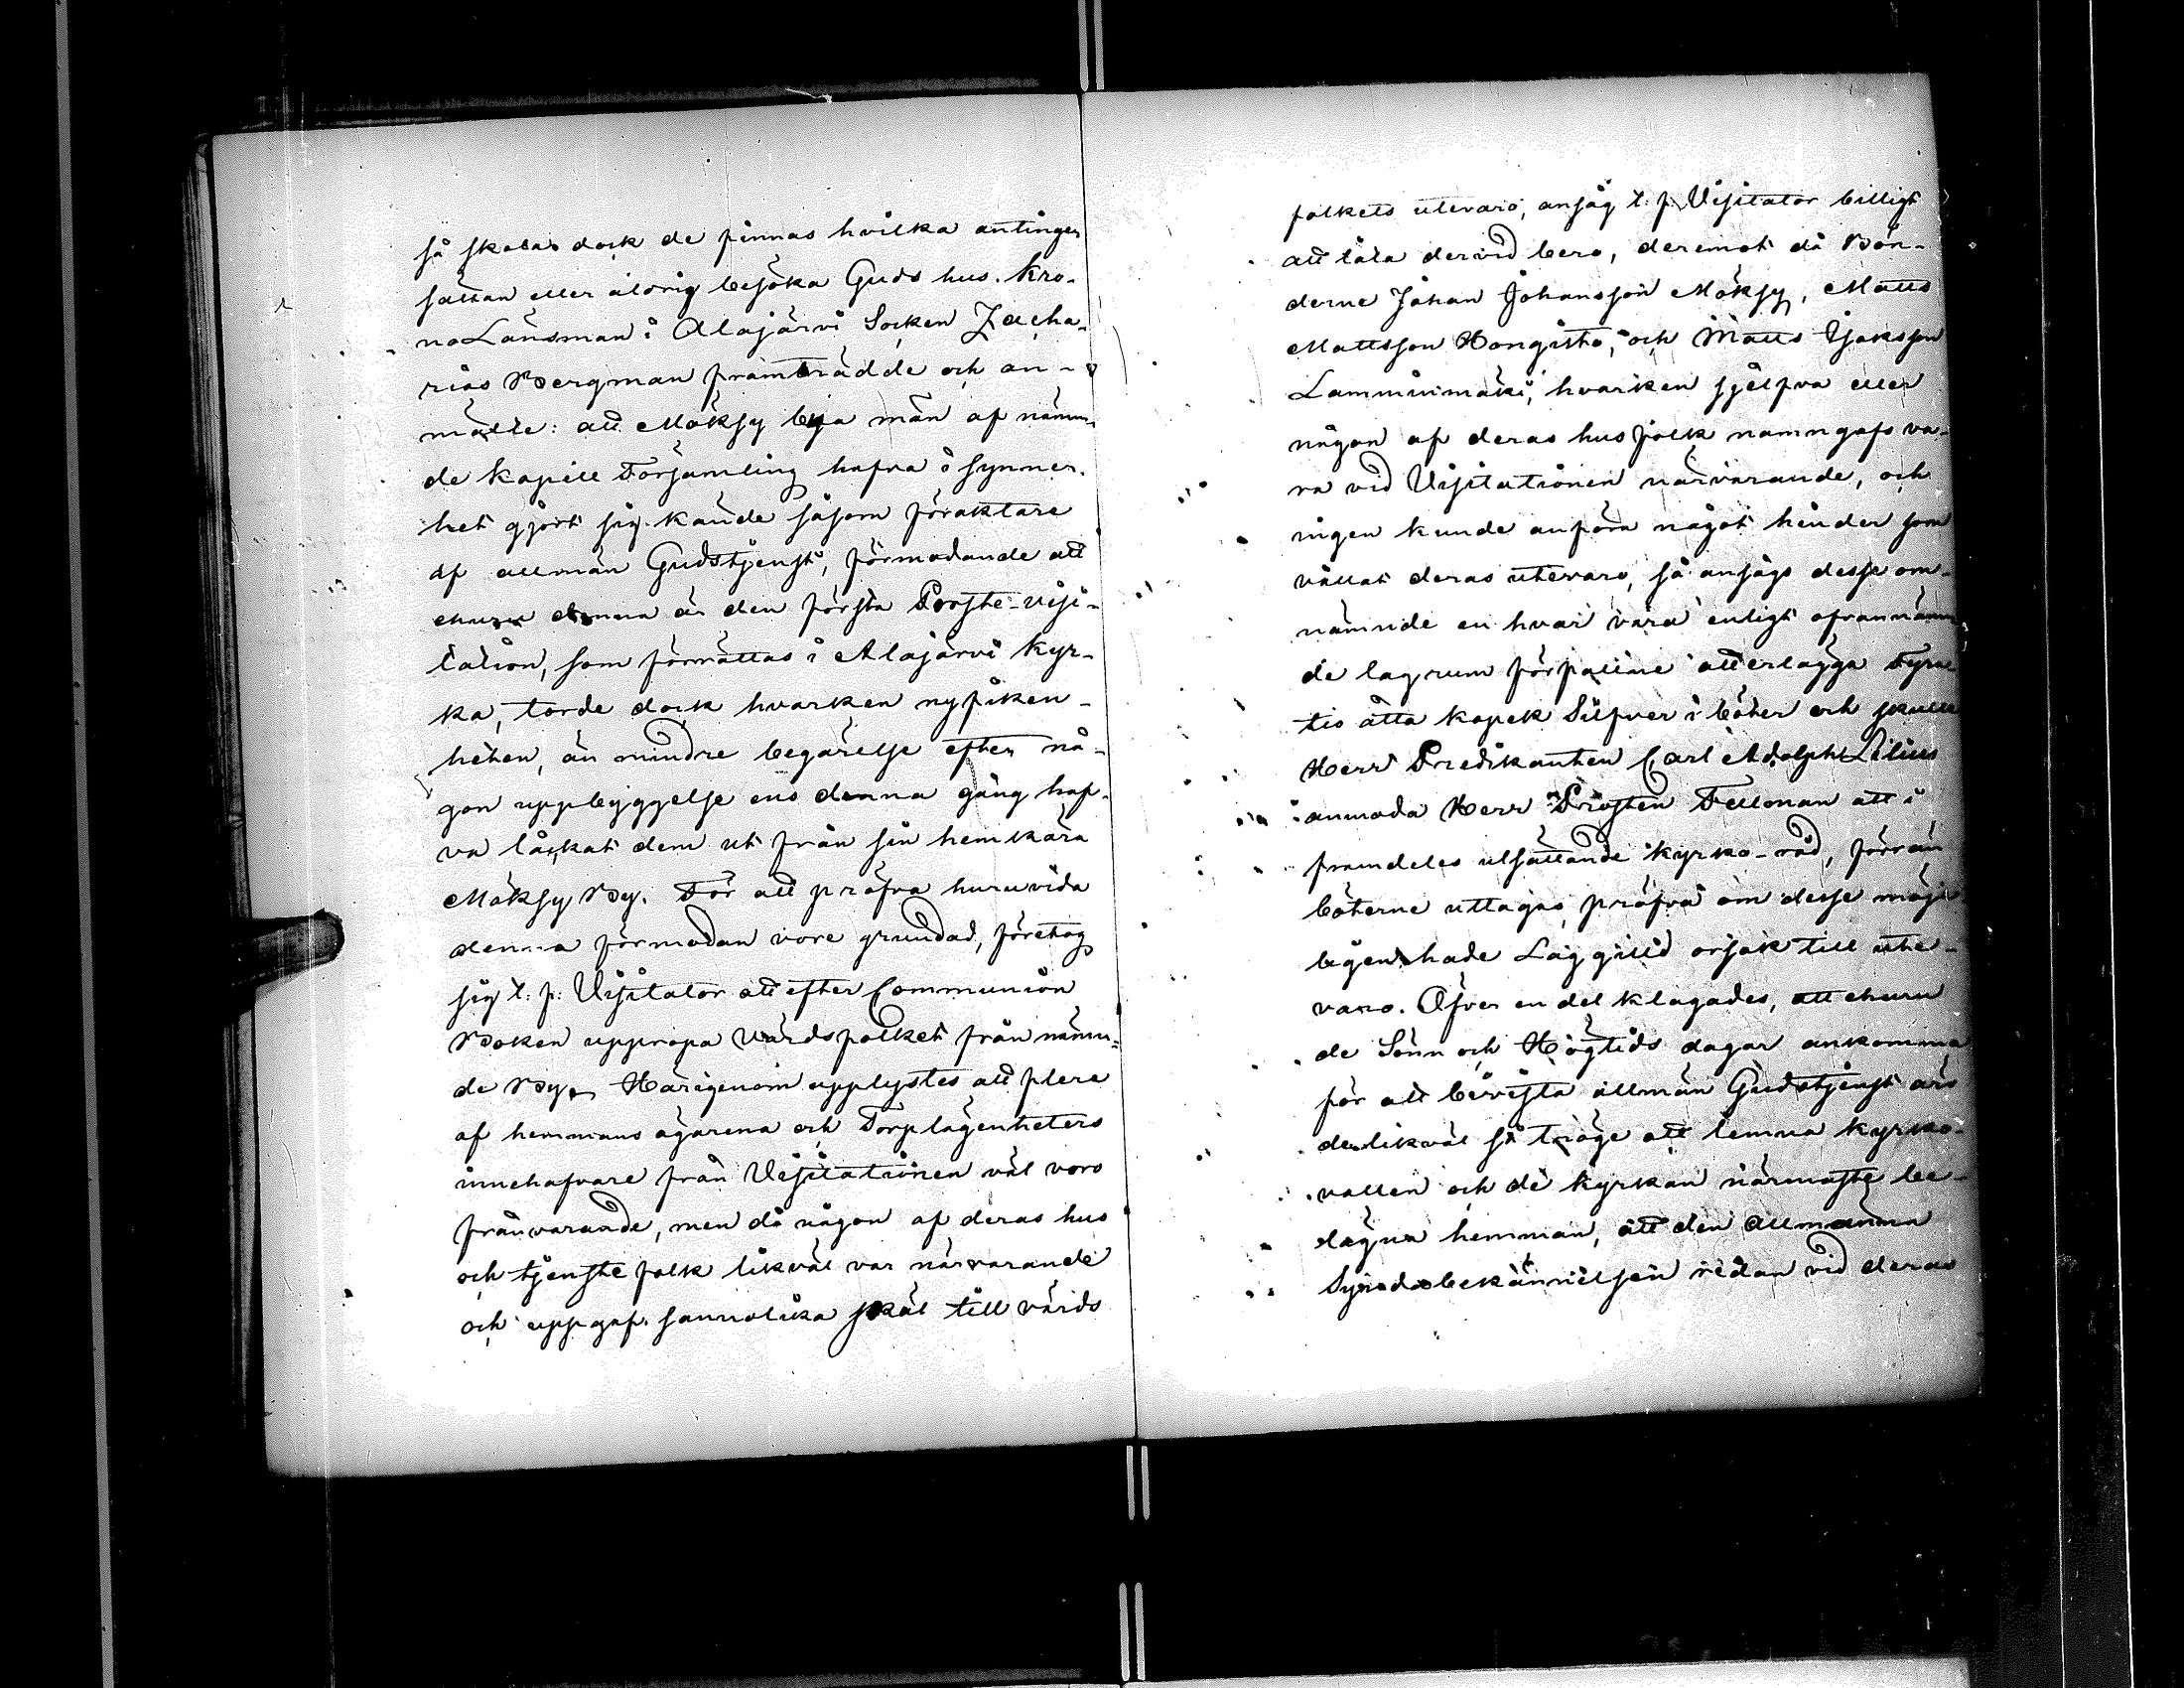 så skola dock de finnas hvilka antingen
sällan eller aldrig besöka Guds hus. Kro-
no Länsman i Alajärvi Socken Zacha-
rias Bergman framträdde och an-
mälte: att Möksy bya män af nämn-
de Kapell Församling hafva i synner-
het gjort sig kände såsom föraktare
af allmän Gudstjenst, förmodande att
ehuru denna är den första Prosте-visi-
tation, som förrättas i Alajärvi Kyr-
ka, torde dock hvarken nyfiken-
heten, än mindre begärelse efter nå-
gon uppbyggelse ens denna gång haf-
va låckat dem ut från sin hemkära
Möksy By. För att pröfva huruvida
denna förmodan vore grundad, företog
sig t: f: Visitator att efter Communion
Boken uppropa Värdsfolket från nämn-
de By. Härigenom upplystes att flere
af hemmans ägarena och Torplägenheters
innehafvare från Visitationen väl voro
frånvarande, men då någon af deras hus
och tjenste folk likväl var närvarande
och uppgaf sannolika skäl till värds
folkets utevaro, ansåg t: f: Visitator billigt
att låta dervid bero, deremot då Bön-
derne Johan Johansson Möksy, Matts
Mattsson Hongisto, och Matts Isaksson
Lamminmäki, hvarken sjelfva eller
någon af deras husfolk namngafs va-
ra vid Visitationen närvarande, och
ingen kunde anföra något hinder som
vållat deras utevaro, så ansågs desse om-
nämnde en hvar vara enligt ofvannämn
de lagrum förfallne att erlägga Fyra-
tio åtta kopek Silfver i böter och skulle
Herr Predikanten Carl Adolph Lilius
anmoda Herr Prosten Fellman att i
framdeles utsättande kyrko-råd, förrän
böterne uttagas, pröfva om desse möji-
ligen hade Laggilld orsak till ute-
varo. Öfver en del klagades, att ehuru
de Sönn och Högtids dagar ankomma
för att bevista allmän Gudstjenst äro
de likväl så tröge att lemna Kyrko-
vallen och de kyrkan närmaste be-
lägna hemman, att den Allmänna
Syndabekännelsen redan vid deras